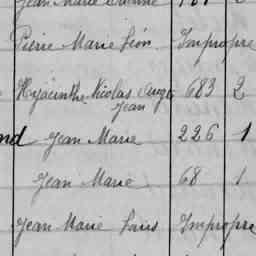 Jean Marie
Pierre Marie Léon Impropre
Hyacinthe Nicolas 683 2
Jean
nd Jean Marie 226 1
Jean Marie 68 1
Jean Marie Louis Impropre